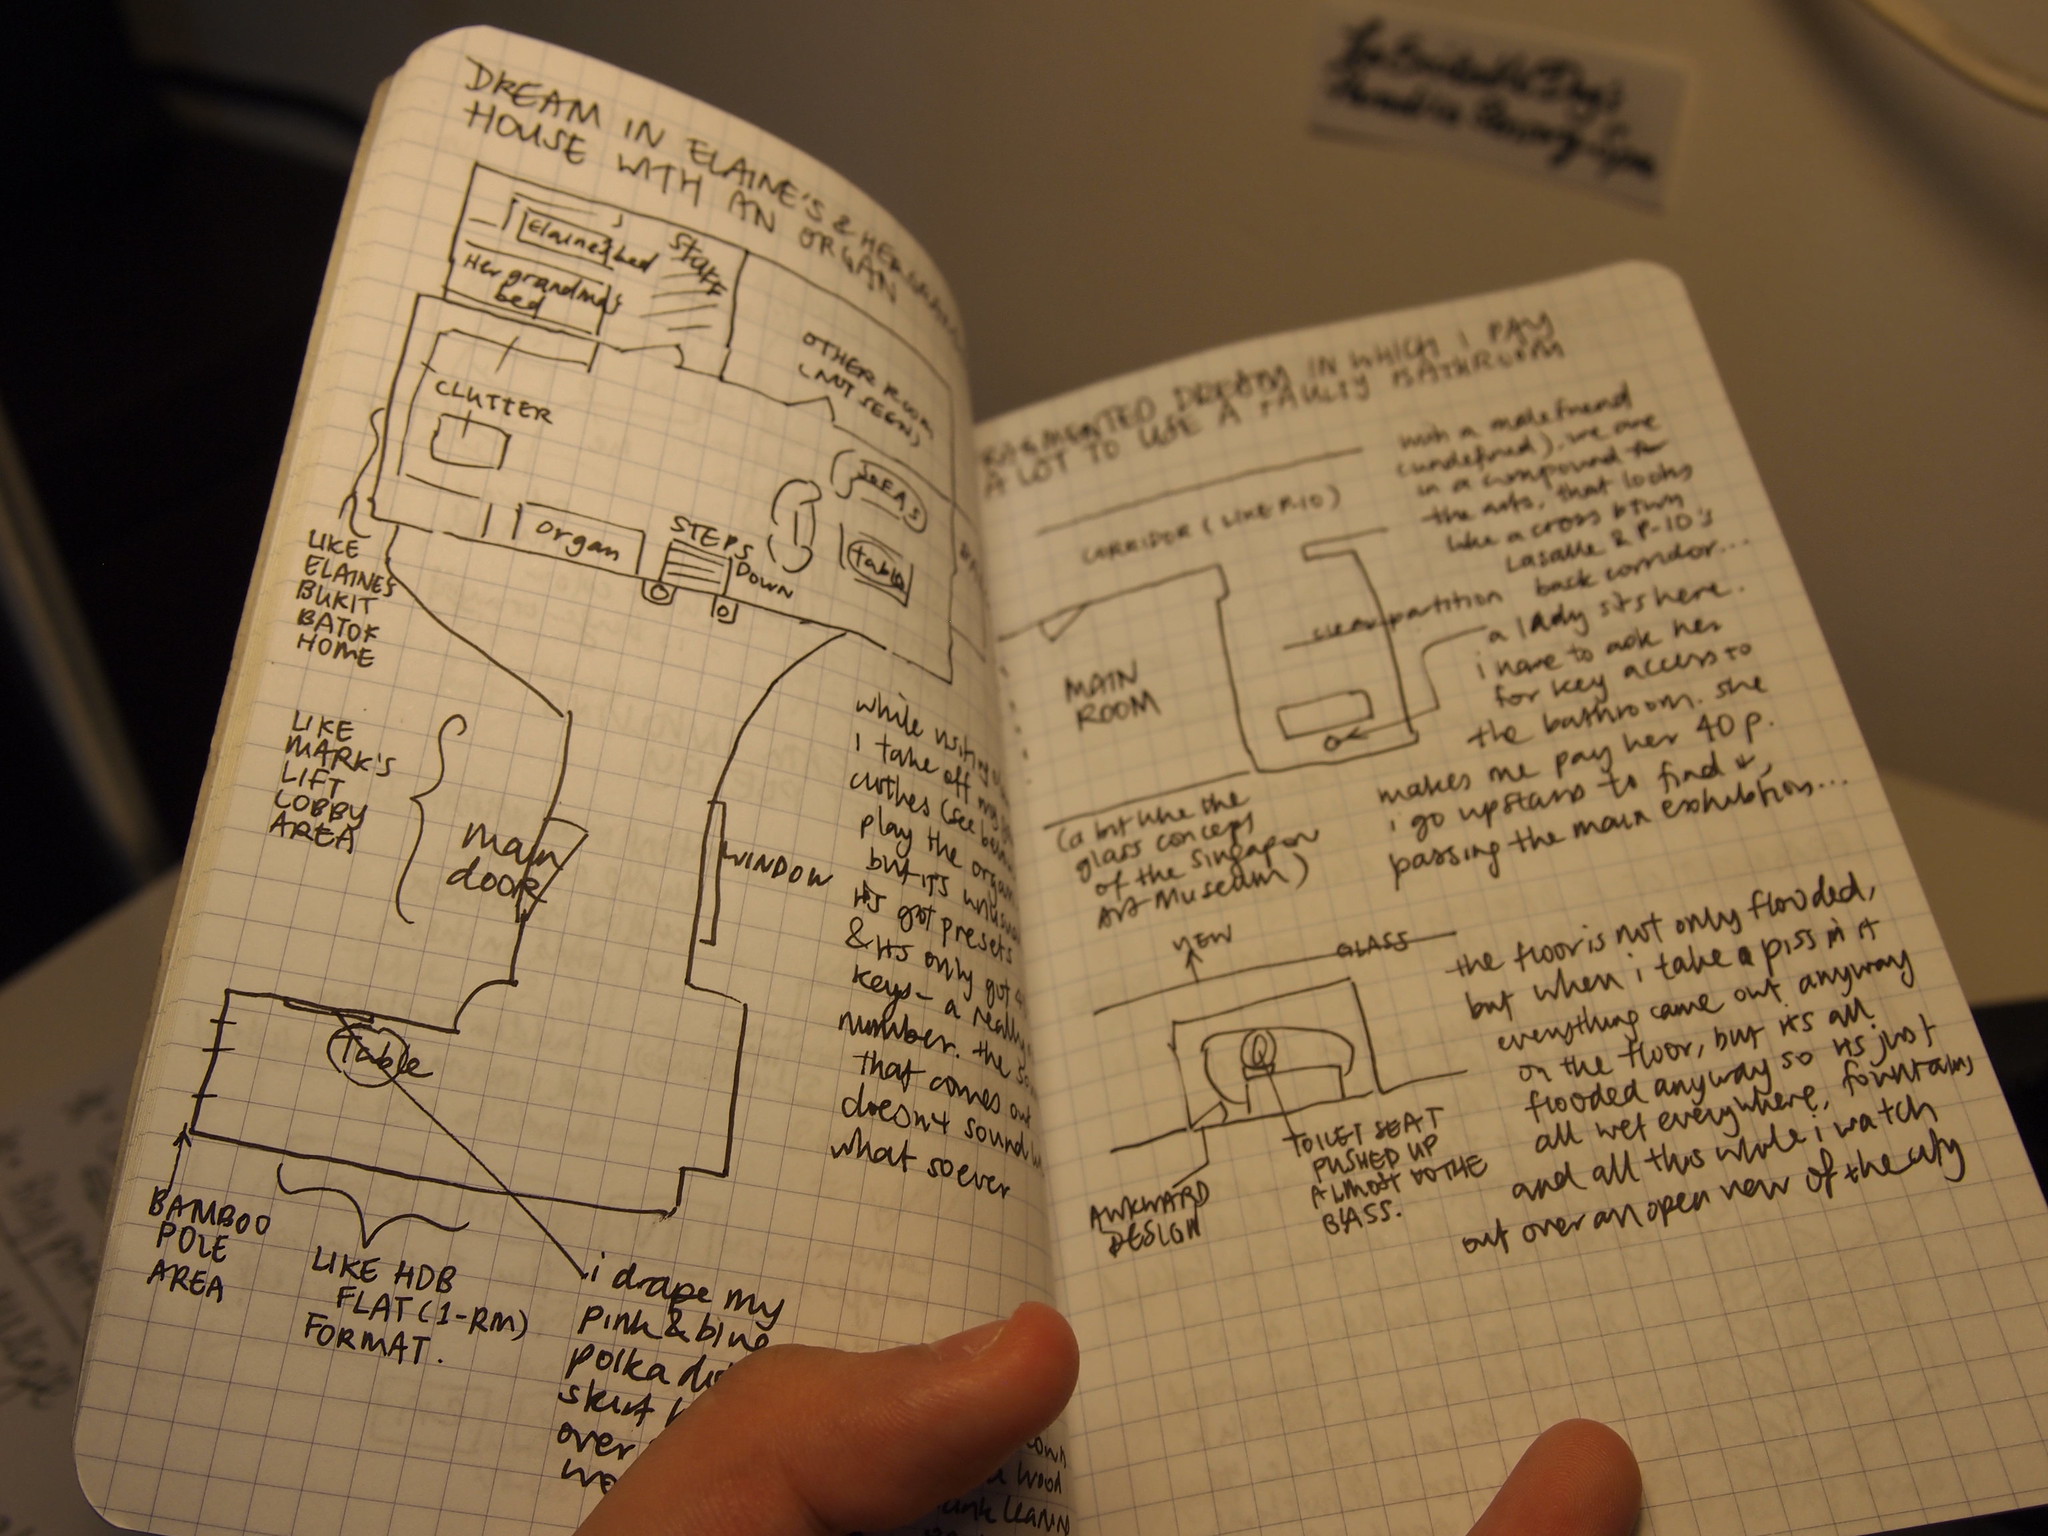 DREAM IN ELAINE'S & HER
HOUSE WITH AN ORGAN
Elaine's bed
Stuff
Her grandma's
bed
OTHER ROOM
(NOT SEEN)
CLUTTER
SOFAS
organ
STEPS
DOWN
table
LIKE
ELAINE'S
BUKIT
BATOK
HOME
LIKE
MARK'S
LIFT
LOBBY
AREA
main
door
WINDOW
table
BAMBOO
POLE
AREA
LIKE HDB
FLAT (1-RM)
FORMAT.
while visiting
I take off my
clothes (see
play the organ
but it's
it's got presets
& it's only got
keys - a really
number. the
that comes out
doesn't sound
what so ever
i drape my
pink & blue
polka
skirt
over
wood
DREAM IN WHICH I PAY
A LOT TO USE A FAULTY BATHROOM
CORRIDOR (LIKE P-10)
with a male friend
(undefined). we are
in a compound
the arts, that looks
like a cross btwn
Lasalle & P-10's
back corridor...
partition
a lady sits here.
i have to ask her
for key access to
the bathroom. she
makes me pay her 40 p.
i go upstairs to find it,
passing the main exhibition...
MAIN
ROOM
(a bit like the
glass concept
of the Singapore
Art Museum)
VIEW
GLASS
TOILET SEAT
PUSHED UP
ALMOST TO THE
GLASS.
AWKWARD
DESIGN
the floor is not only flooded,
but when i take a piss in it
everything came out anyway
on the floor, but it's all
flooded anyway so it's just
all wet everywhere, fountains
and all this while i watch
out over an open view of the city